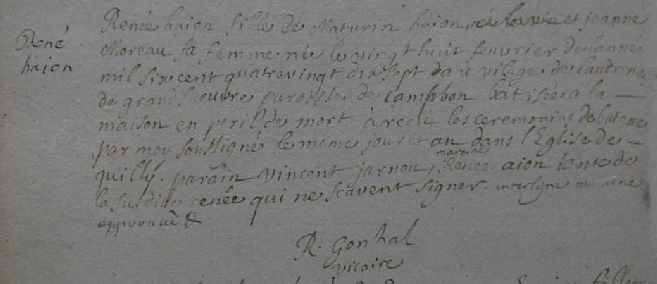 René
haion
Renée haion fille de Maturin haion, et jeanne
Moreau sa femme née le vingt huit feuvrier de lannee
mil six cent quatrevingt dix sept da vilage de
de grand paroisse de campbon batisée a la
maison en peril de mort a reçu les ceremonies de bateme
par moy soussigné le meme jour et an dans l'Eglise de
quilly. parain vincent jarnou, maraine Renée aion tente de
la susdite renée qui ne scavent signer. interligne maraine
approuvé
R. Gonhal
vicaire